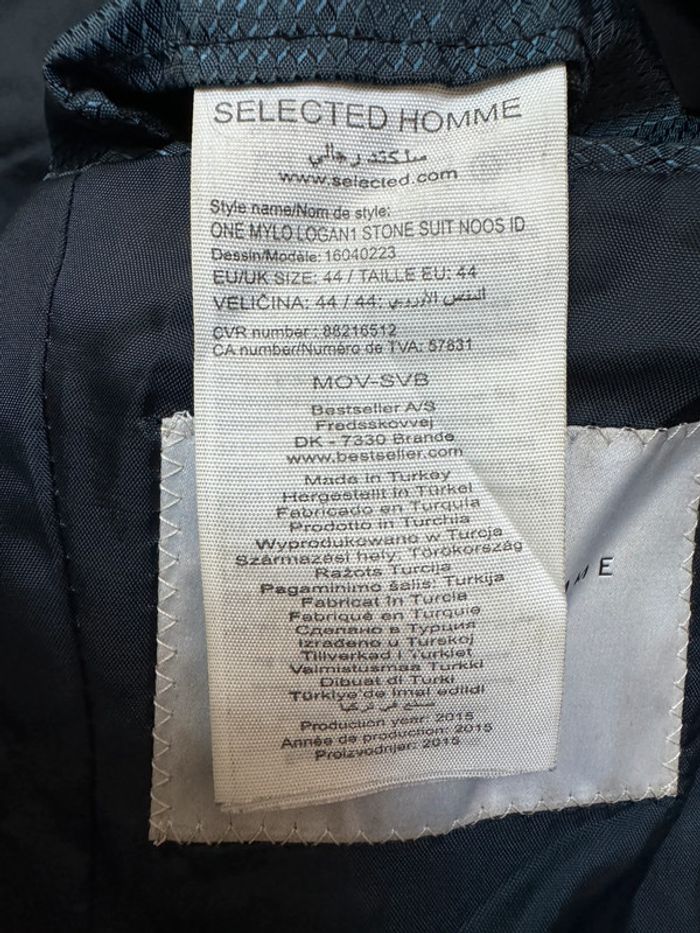 SELECTED HOMME
سلكتد رجالي
www.selected.com
Style name/Nom de style:
ONE MYLO LOGAN1 STONE SUIT NOOS ID
Dessin/Modèle: 16040223
EU/UK SIZE: 44 / TAILLE EU: 44
VELIČINA: 44 / 44: المقاس الأوروبي
CVR number : 88216512
CA number/Numéro de TVA: 57831
MOV-SVB
Bestseller A/S
Fredsskovvej
DK - 7330 Brande
www.bestseller.com
Made in Turkey
Hergestellt in Türkei
Fabricado en Turquía
Prodotto in Turchia
Wyprodukowano w Turcja
Származási hely: Törökország
Ražots Turcija
Pagaminimo šalis: Turkija
Fabricat în Turcia
Fabriqué en Turquie
Сделано в Турция
Izrađeno u Turskoj
Tillverkad i Turkiet
Valmistusmaa Turkki
Dibuat di Turki
Türkiye'de imal edildi
صنع في تركيا
Production year: 2015
Année de production: 2015
Proizvodnjer: 2015
ME